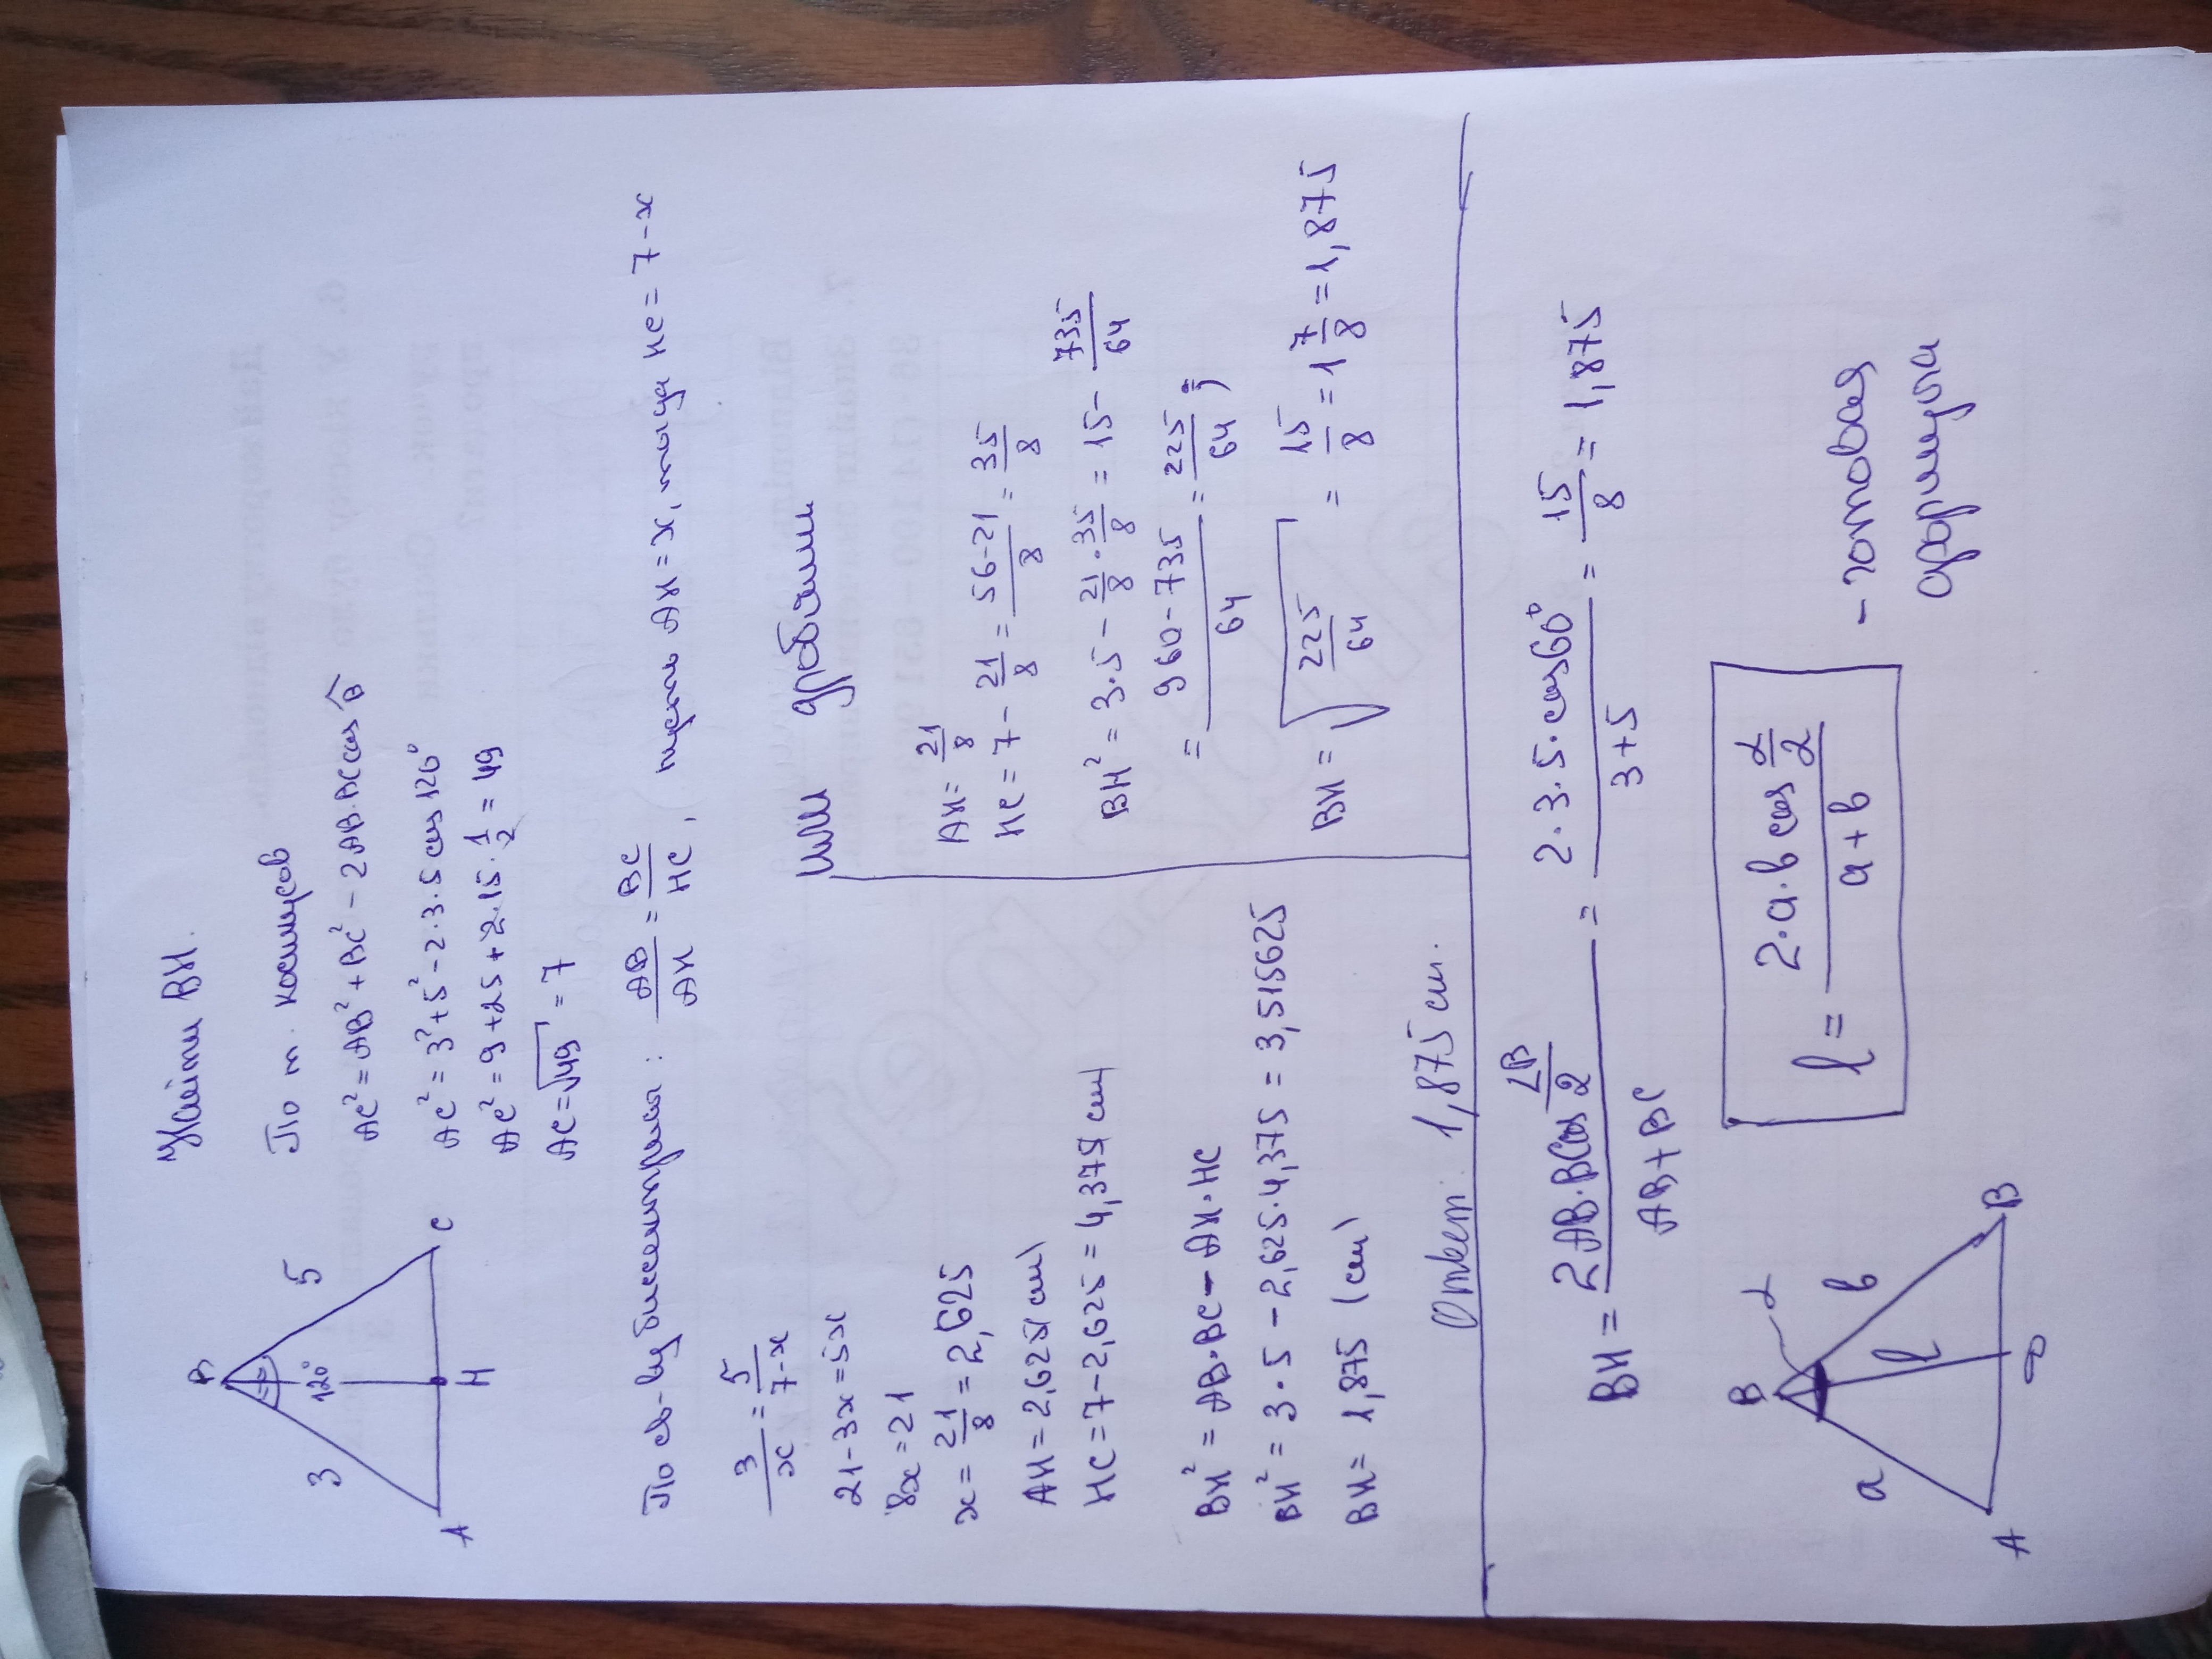 Найти BH.
B
3
5
120°
A
H
C
По т. косинусов
AC² = AB² + BC² - 2AB·BC cos B
AC² = 3² + 5² - 2·3·5 cos 120°
AC² = 9 + 25 + 2·15·1/2 = 49
AC = √49 = 7
По св-ву биссектрисы: AB/AH = BC/HC, пусть AH = x, тогда HC = 7-x
3/x = 5/7-x
21-3x=5x
8x=21
x = 21/8 = 2,625
AH = 2,625(см)
HC = 7-2,625 = 4,375(см)
BH² = AB·BC - AH·HC
BH² = 3·5 - 2,625·4,375 = 3,515625
BH = 1,875 (см)
или дробями
AH = 21/8
HC = 7 - 21/8 = 56-21/8 = 35/8
BH² = 3·5 - 21/8 · 35/8 = 15 - 735/64
= 960-735/64 = 225/64;
BH = √225/64 = 15/8 = 1 7/8 = 1,875
Ответ: 1,875 см.
BH = 2AB·BC cos ∠B/2 / AB+BC = 2·3·5·cos60° / 3+5 = 15/8 = 1,875
B
α
a
l
b
A
D
B
l = 2·a·b cos α/2 / a+b
- готовая
формула